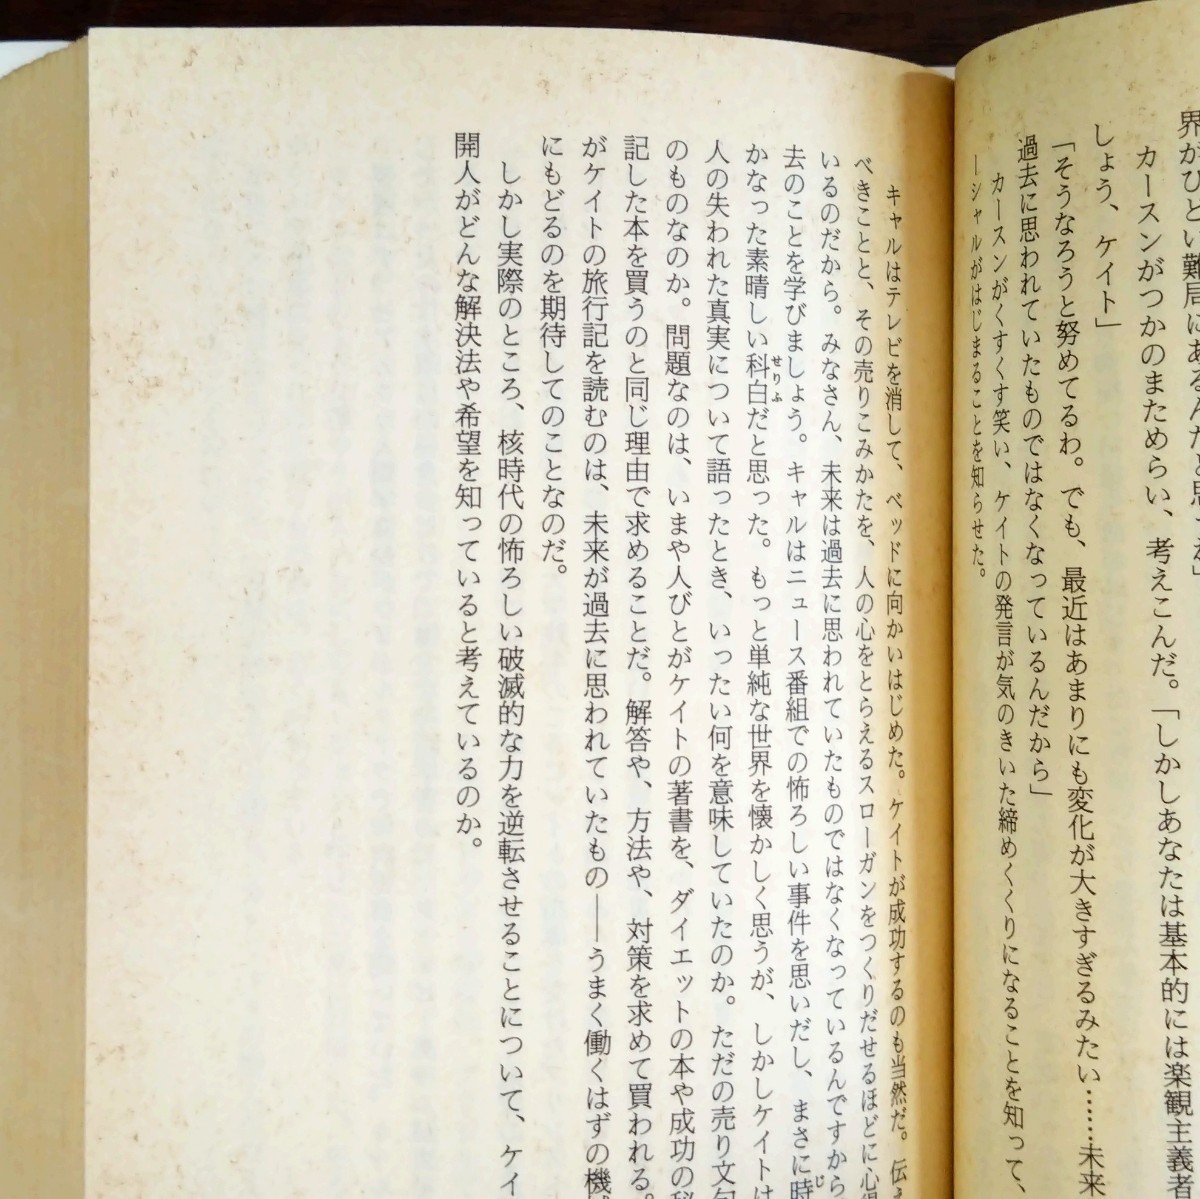 界がひどい難局にあるんだと思
カースンがつかのまためらい、考えこんだ。「しかしあなたは基本的には楽観主義者
しょう、ケイト」
「そうなろうと努めてるわ。でも、最近はあまりにも変化が大きすぎるみたい……未来
過去に思われていたものではなくなっているんだから」
カースンがくすくす笑い、ケイトの発言が気のきいた締めくくりになることを知って、
ーシャルがはじまることを知らせた。
キャルはテレビを消して、ベッドに向かいはじめた。ケイトが成功するのも当然だ。伝え
べきことと、その売りこみかたを、人の心をとらえるスローガンをつくりだせるほどに心得
いるのだから。みなさん、未来は過去に思われていたものではなくなっているんですから
去のことを学びましょう。キャルはニュース番組での怖ろしい事件を思いだし、まさに時
かなった素晴しい科白だと思った。もっと単純な世界を懐かしく思うが、しかしケイトは
人の失われた真実について語ったとき、いったい何を意味していたのか。ただの売り文句
のものなのか。問題なのは、いまや人びとがケイトの著書を、ダイエットの本や成功の秘
記した本を買うのと同じ理由で求めることだ。解答や、方法や、対策を求めて買われる。
がケイトの旅行記を読むのは、未来が過去に思われていたもの――うまく働くはずの機
にもどるのを期待してのことなのだ。
しかし実際のところ、核時代の怖ろしい破滅的な力を逆転させることについて、ケイ
開人がどんな解決法や希望を知っていると考えているのか。